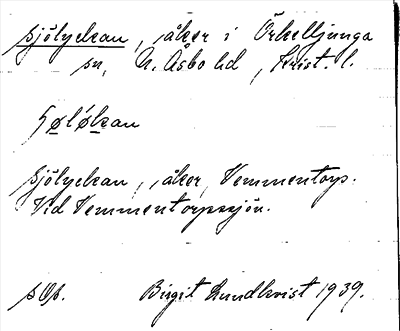 Sjölyckan, åker i Örkelljunga
sn, N. Åsbo hd, Krist. l.
Sjölyckan, åker, Vemmentorp.
Vid Vemmentorpssjön.
Birgit Lundkvist 1939.